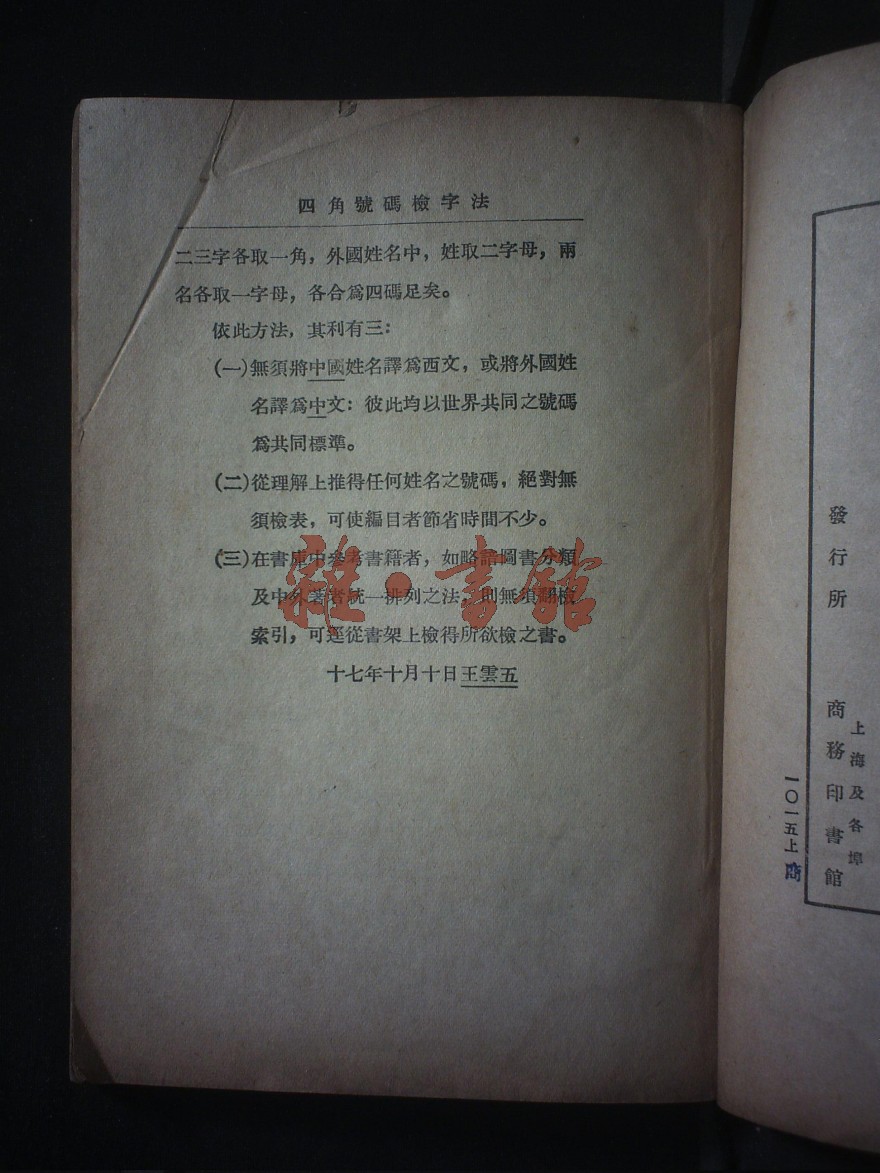 四角號碼檢字法
二三字各取一角，外國姓名中，姓取二字母，兩
名各取一字母，各合爲四碼足矣。
依此方法，其利有三：
(一)無須將中國姓名譯爲西文，或將外國姓
名譯爲中文：彼此均以世界共同之號碼
爲共同標準。
(二)從理解上推得任何姓名之號碼，絕對無
須檢表，可使編目者節省時間不少。
(三)在書庫中參考書籍者，如略諳圖書分類
及中外著者統一排列之法，則無須翻檢
索引，可逕從書架上檢得所欲檢之書。
十七年十月十日王雲五
雜·書館
發行所
上海及各埠
商務印書館
一〇一五上
商